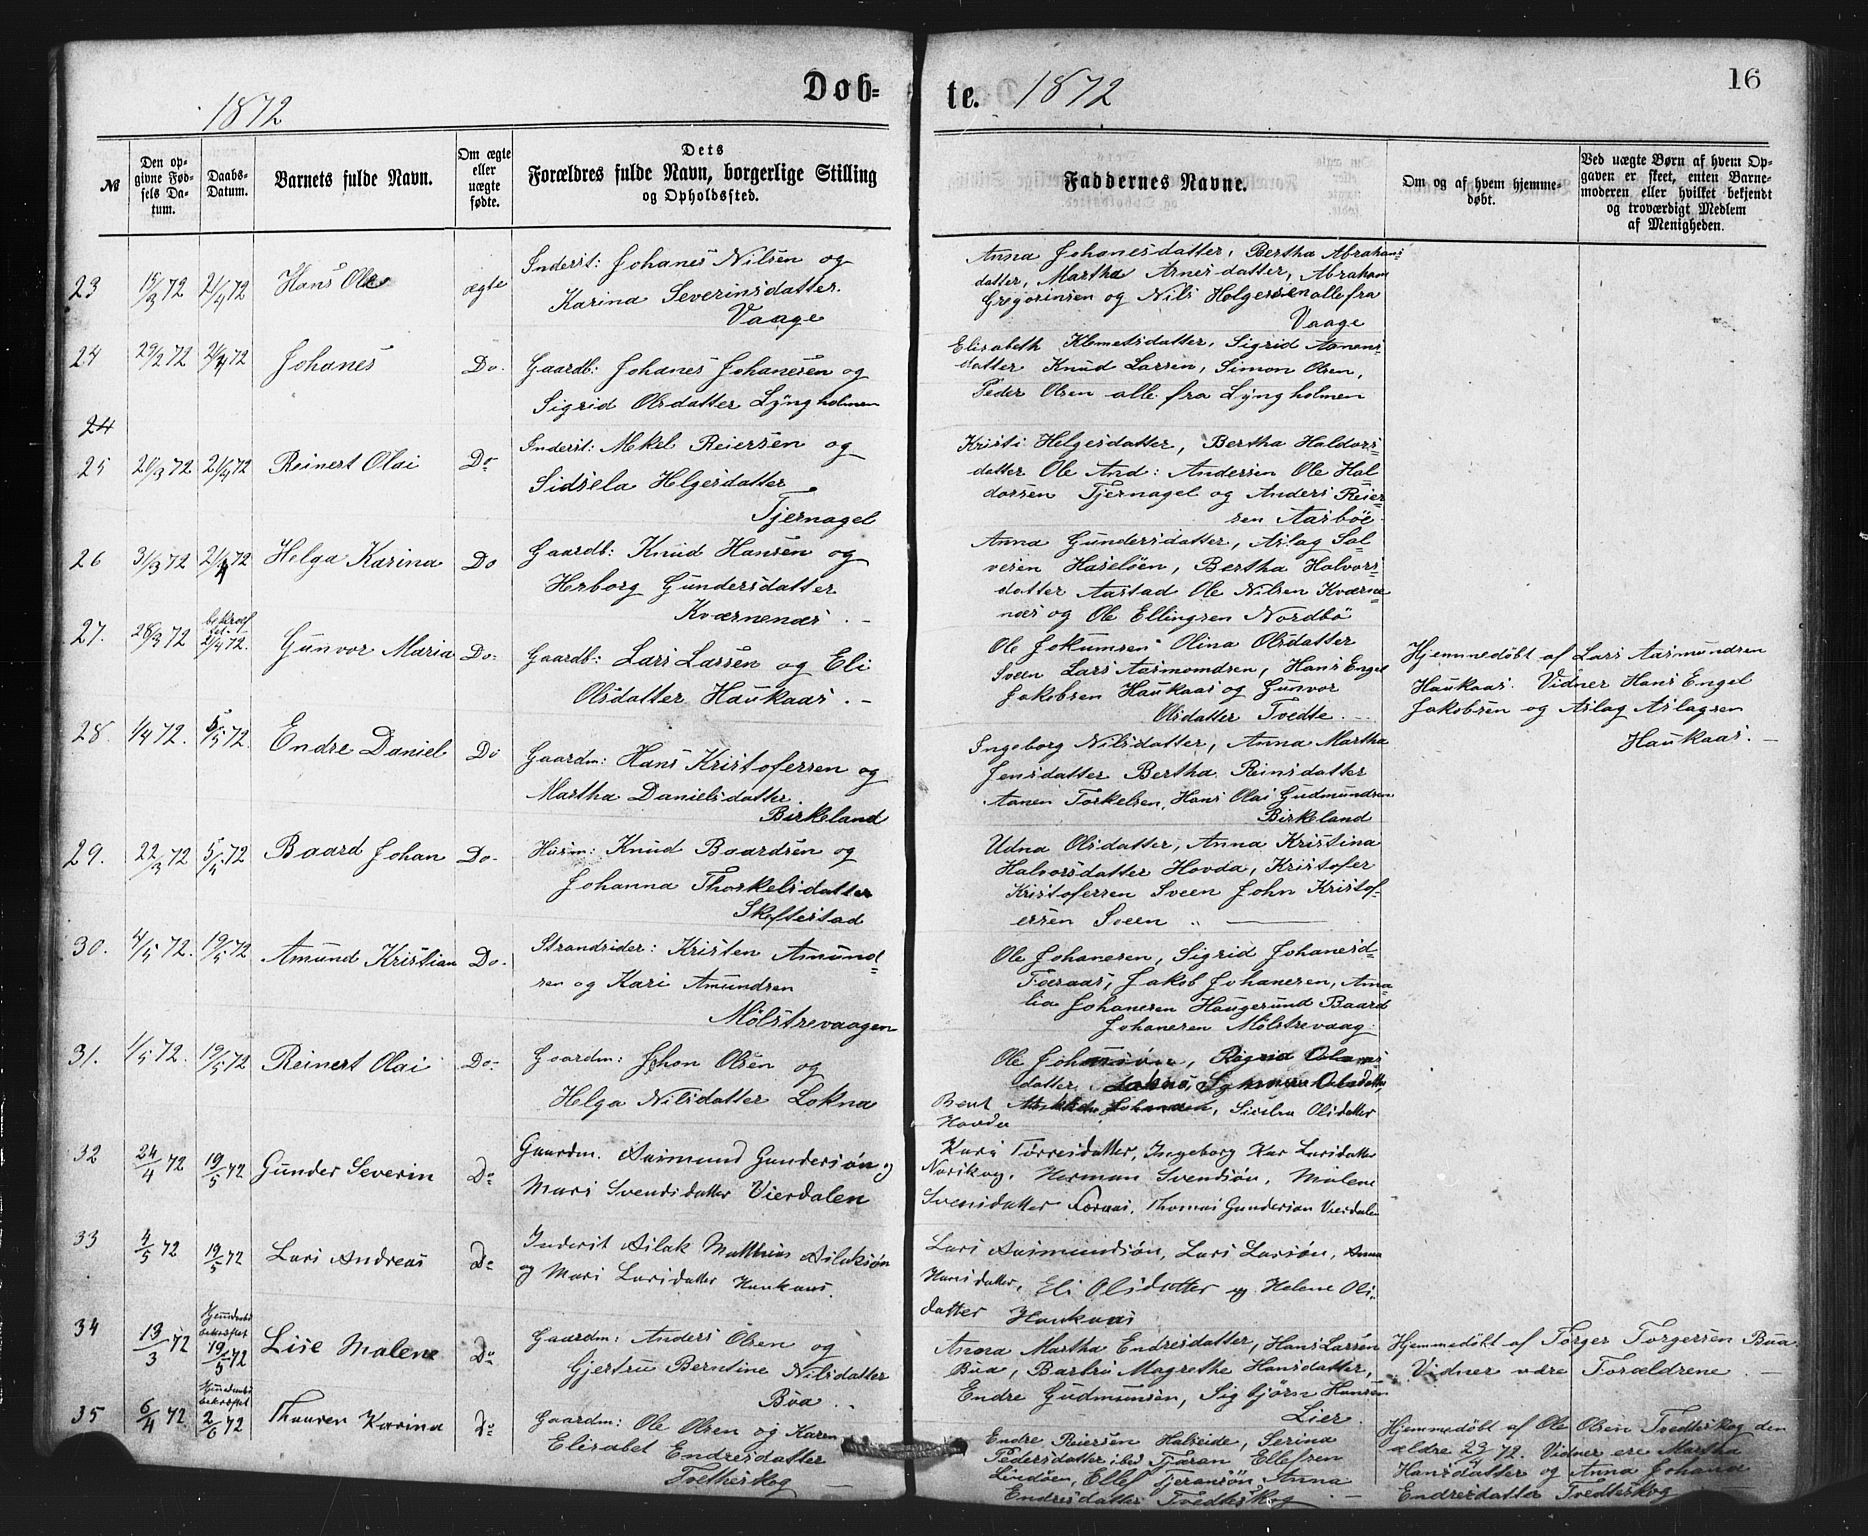 1872
Døb-
te.
1872
16
№
Den op-
givne Fød-
sels Da-
tum.
Daabs-
Datum.
Barnets fulde Navn.
Om ægte
eller
uægte
fødte.
Dets
Forældres fulde Navn, borgerlige Stilling
og Opholdssted.
Faddernes Navne.
Om og af hvem hjemme-
døbt.
Ved uægte Børn af hvem Op-
gaven er skeet, enten Barne-
moderen eller hvilket bekjendt
og troværdigt Medlem
af Menigheden.
23 15/3 72 21/4 72 Hans Ole ægte
Inderst: Johanes Nilsen og
Karina Severinsdatter.
Vaage
Anna Johanesdatter, Bertha Abrahams
datter, Martha Arnesdatter, Abraham
Gregoriusen og Nils Holgersen alle fra
Vaage
24 29/2 72 21/4 72 Johanes Do.
Gaardb: Johanes Johanesen og
Sigrid Olsdatter Lyngholmen
Elisabeth Klemetsdatter, Sigrid Amons-
datter Knud Larsen, Simon Olsen,
Peder Olsen alle fra Lyngholmen
24
25 20/3 72 21/4 72 Reinert Olai Do
Inderst: Mekel Reiersen og
Sidsela Helgesdatter
Tjernagel
Kristi Helgesdatter, Bertha Haldors-
datter Ole And: Andersen Ole Hal-
dorsen Tjernagel og Anders Reier-
sen Aasbøe
26 31/3 72 21/4 72 Helga Karina Do
Gaardb: Knud Hansen og
Herborg Gundersdatter
Kværnenæs
Anna Gundersdatter, Aslag Sal-
vesen Hasseløen, Bertha Halvors-
datter Aastad Ole Nilsen Kværne-
næs og Ole Ellingsen Nordbö
27. 28/3 72 bekræf
tet. 21/4 72. Gunvor Maria Do.
Gaardb: Lars Larsen og Eli
Olsdatter Haukaas.
Ole Jokumsen Olina Olsdatter
Sveen Lars Aasmomdsen, Hans Engel
Jakobsen Haukaas og Gunvor
Olsdatter Tvedte.
Hjemmedøbt af Lars Aasmundsen
Haukaas. Vidner Hans Engel
Jakobsen og Aslag Aslagsen
Haukaas.
28. 1/4 72. 5/5 72 Endre Daniel Do
Gaardm: Hans Kristofersen og
Martha Danielsdatter
Birkeland
Ingeborg Nilsdatter, Anna Martha
Jensdatter Bertha Reinsdatter
Aanen Torkelsen, Hans Olai Gudmundsen
Birkeland
29. 22/3 72 5/5 72 Baard Johan Do.
Husm: Knud Baardsen og
Johanna Thorkelsdatter
Skoftestad
Udna Olsdatter, Anna Kristina
Halvorsdatter Hovda, Kristofer
Kristofersen Sveen John Kristof-
ersen Sveen
30. 4/5 72. 19/5 72 Amund Kristian Do.
Strandsider: Kristen Amund-
sen og Kari Amundsen
Mölstrevaagen
Ole Johanesen, Sigrid Johanesd-
Foraas, Jakob Johanesen, Ama-
lia Johanesen Haugesund Baard
Johanesen Mölstrevaag.
31. 1/5 72. 19/5 72 Reinert Olai Do.
Gaardm: Jhon Olsen og
Helga Nilsdatter Lokna
Bent Hovda
Sisela Olsdatter
32 24/4 72 19/5 72 Gunder Severin Do
Gaardm. Aasmund Gundersøn og
Mari Svendsdatter Vierdalen
Kari Torresdatter, Ingeborg Kar Larsdatter
Herman Svendsøn, Malene
Svensdatter Foraas, Thomas Gundersøn Vierdalen
33 4/5 72 19/5 72 Lars Andreas Do
Inderst Aslak Mathias Aslaksøn
og Mari Larsdatter Haukaas.
Lars Aasmundsøn, Lars Larsøn, Anna
Hansdatter, Eli Olsdatter og Helene Ols-
datter Haukaas
34 13/3 72 bekræftet
19/5 72 Lise Malene Do
Gaardm: Anders Olsen og
Gjertru Berntine Nilsdatter
Bua
Anna Martha Endresdatter, Hans Larsen
Bua, Barbro Magrethe Hansdatter,
Endre Gudmunsen, Sigbjörn Hansen
Lier.
Hjemmedøbt af Torger Torgersen Bua.
Vidner være Forældrene
35 6/4 72 bekræftet
2/6 72 Thauren Karina Do
Gaardm: Ole Olsen og Karen
Elisabet Endresdatter
Tvetheskog
Endre Reiersen Halseide, Serina
Pedersdatter ibed Tjøran Ellefsen
Lindöen, Ellef Tjeransön, Anna
Endresdatter Tvedteskog
Hjemmedøbt af Ole Olsen Tvedteskog den
ældre 72. Vidner ere Martha
Hansdatter og Anna Johana
Endresdatter Tvedteskog